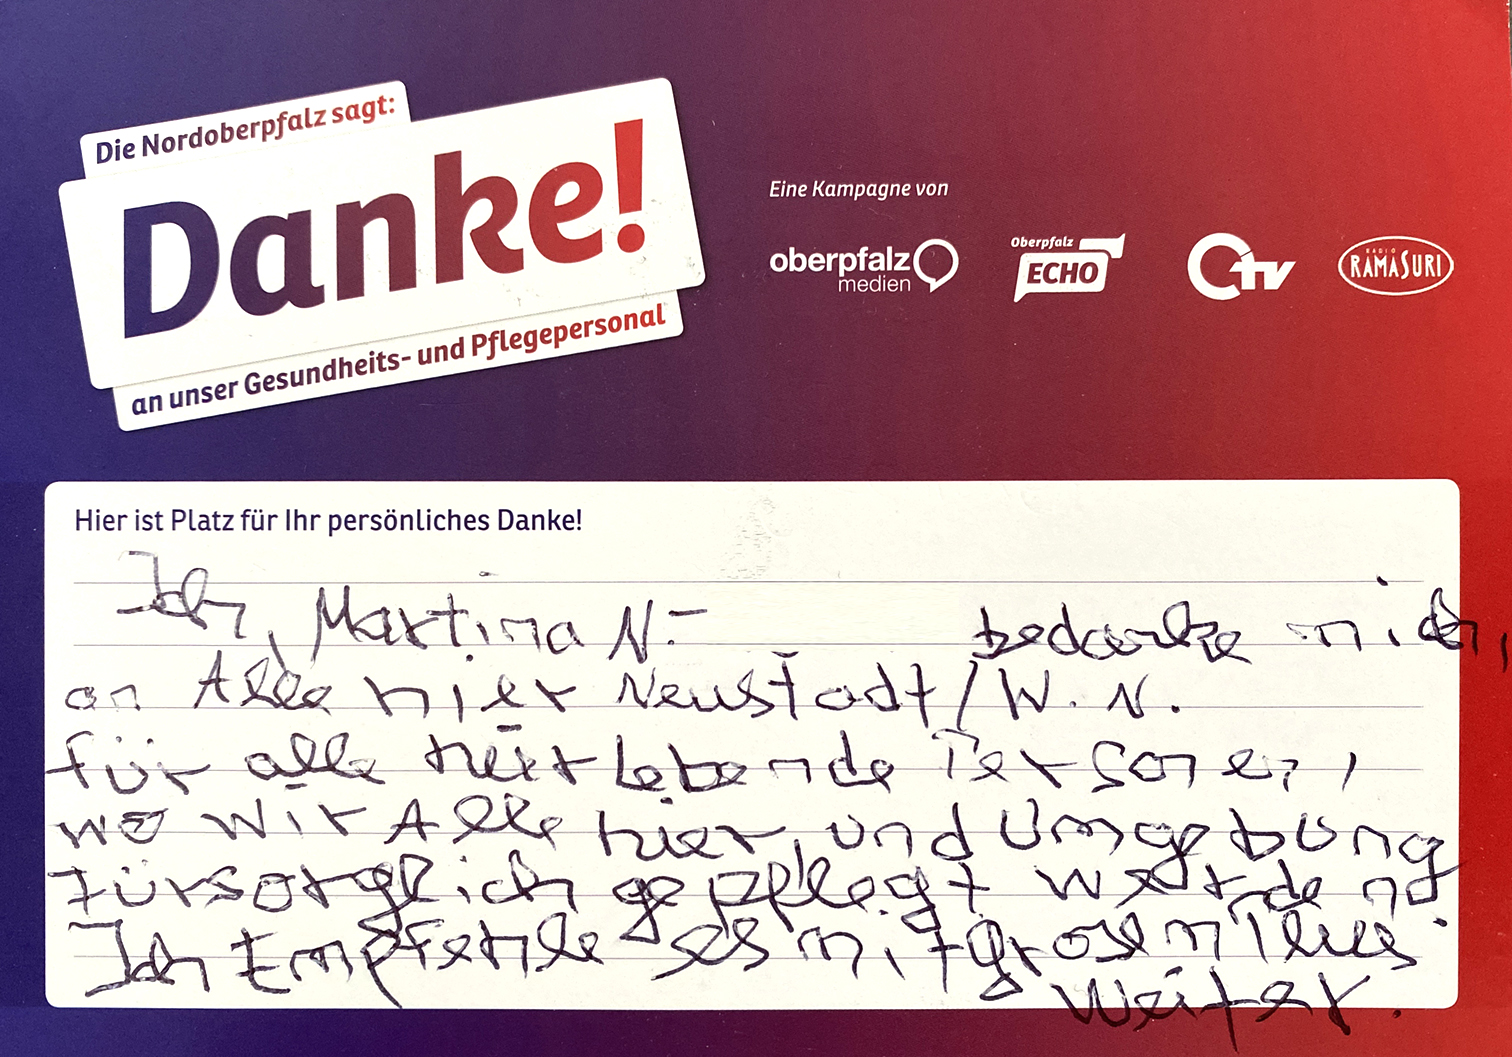 Die Nordoberpfalz sagt:
Danke!
an unser Gesundheits- und Pflegepersonal
Eine Kampagne von
oberpfalz
medien
Oberpfalz
ECHO
Otv
RADIO
RAMASURI
Hier ist Platz für Ihr persönliches Danke!
Ich, Martina N.- bedanke mich,
an Alle hier Neustadt/W.N.
für alle hier lebende Personen,
wo wir Alle hier, und Umgebung
fürsorglich gepflegt werden
Ich Empfehle es mit grosem Plus
Weiter.